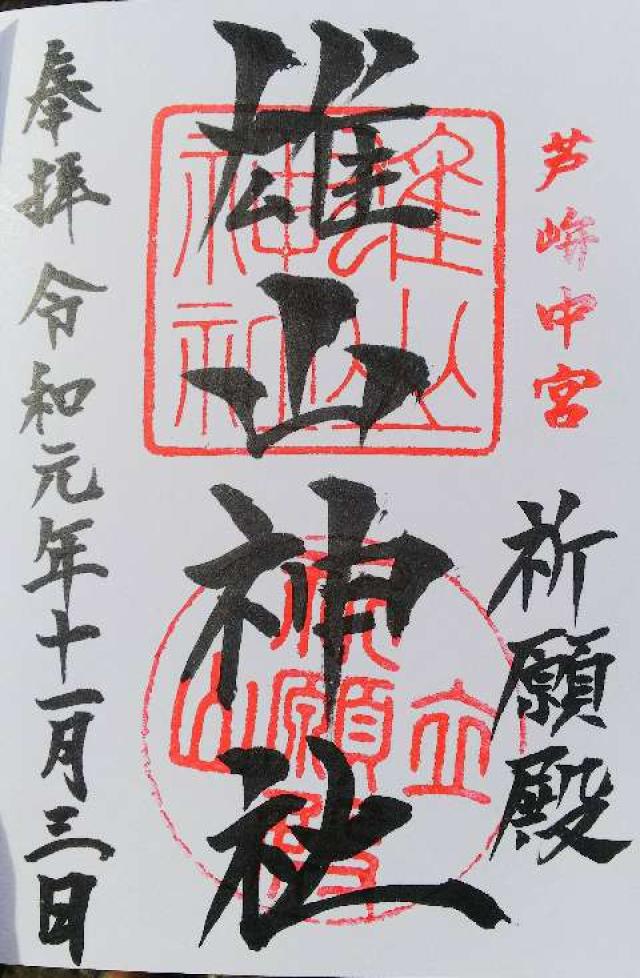 芦峅中宮
祈願殿
雄山神社
雄山神社
立山祈願殿
奉拝 令和元年十一月三日